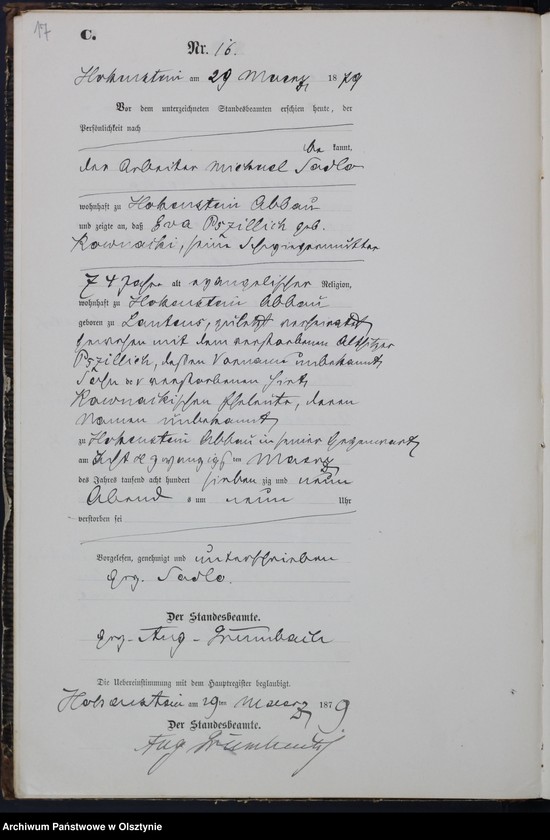 17
C.
Nr. 16.
Hohenstein am 29 Maerz 1879
Vor dem unterzeichneten Standesbeamten erschien heute, der
Persönlichkeit nach
be kannt,
der Arbeiter Michael Sadlo
wohnhaft zu Hohenstein Abbau
und zeigte an, daß Eva Pszillich geb.
Kownatzki, seine Schwiegermutter
74 Jahre alt evangelischer Religion,
wohnhaft zu Hohenstein Abbau
geboren zu Lautens, zuletzt verheirathet
gewesen mit dem verstorbenen Altsitzer
Pszillich, dessen Vorname unbekannt
der verstorbenen
Eheleute, deren
Namen unbekannt
zu Hohenstein Abbau in seiner Gegenwart
am acht u zwanzigsten Maerz
des Jahres tausend acht hundert sieben zig und neun
Abend s um neun Uhr
verstorben sei
Vorgelesen, genehmigt und unterschrieben
gez. Sadlo.
Der Standesbeamte.
gez. Aug. Grumbach
Die Uebereinstimmung mit dem Hauptregister beglaubigt.
Hohenstein am 29ten Maerz 1879
Der Standesbeamte.
Aug Grumbach
Archiwum Państwowe w Olsztynie